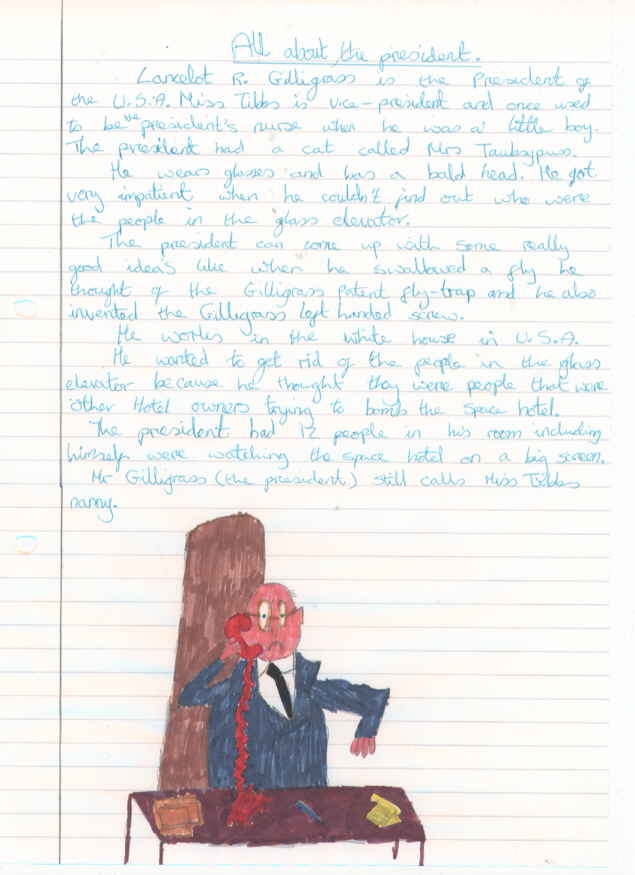 All about the president.
Lancelot R. Gilligrass is the President of
the U.S.A. Miss Tibbs is vice-president and once used
to be the president's nurse when he was a little boy.
The president had a cat called Mrs Taubsypuss.
He wears glasses and has a bald head. He got
very impatient when he couldn't find out who were
the people in the glass elevator.
The president can come up with some really
good ideas like when he swallowed a fly he
thought of the Gilligrass Patent fly-trap and he also
invented the Gilligrass left handed screw.
He works in the white house in U.S.A.
He wanted to get rid of the people in the glass
elevator because he thought they were people that were
other Hotel owners trying to bomb the space hotel.
The president had 12 people in his room including
himself were watching the space hotel on a big screen.
Mr Gilligrass (the president) still calls Miss Tibbs
nanny.